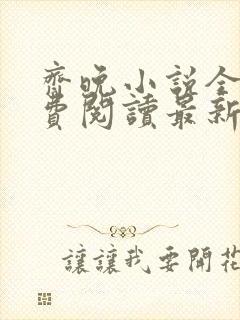 齊晚小說全
費閱讀最新
讓讓我要開花